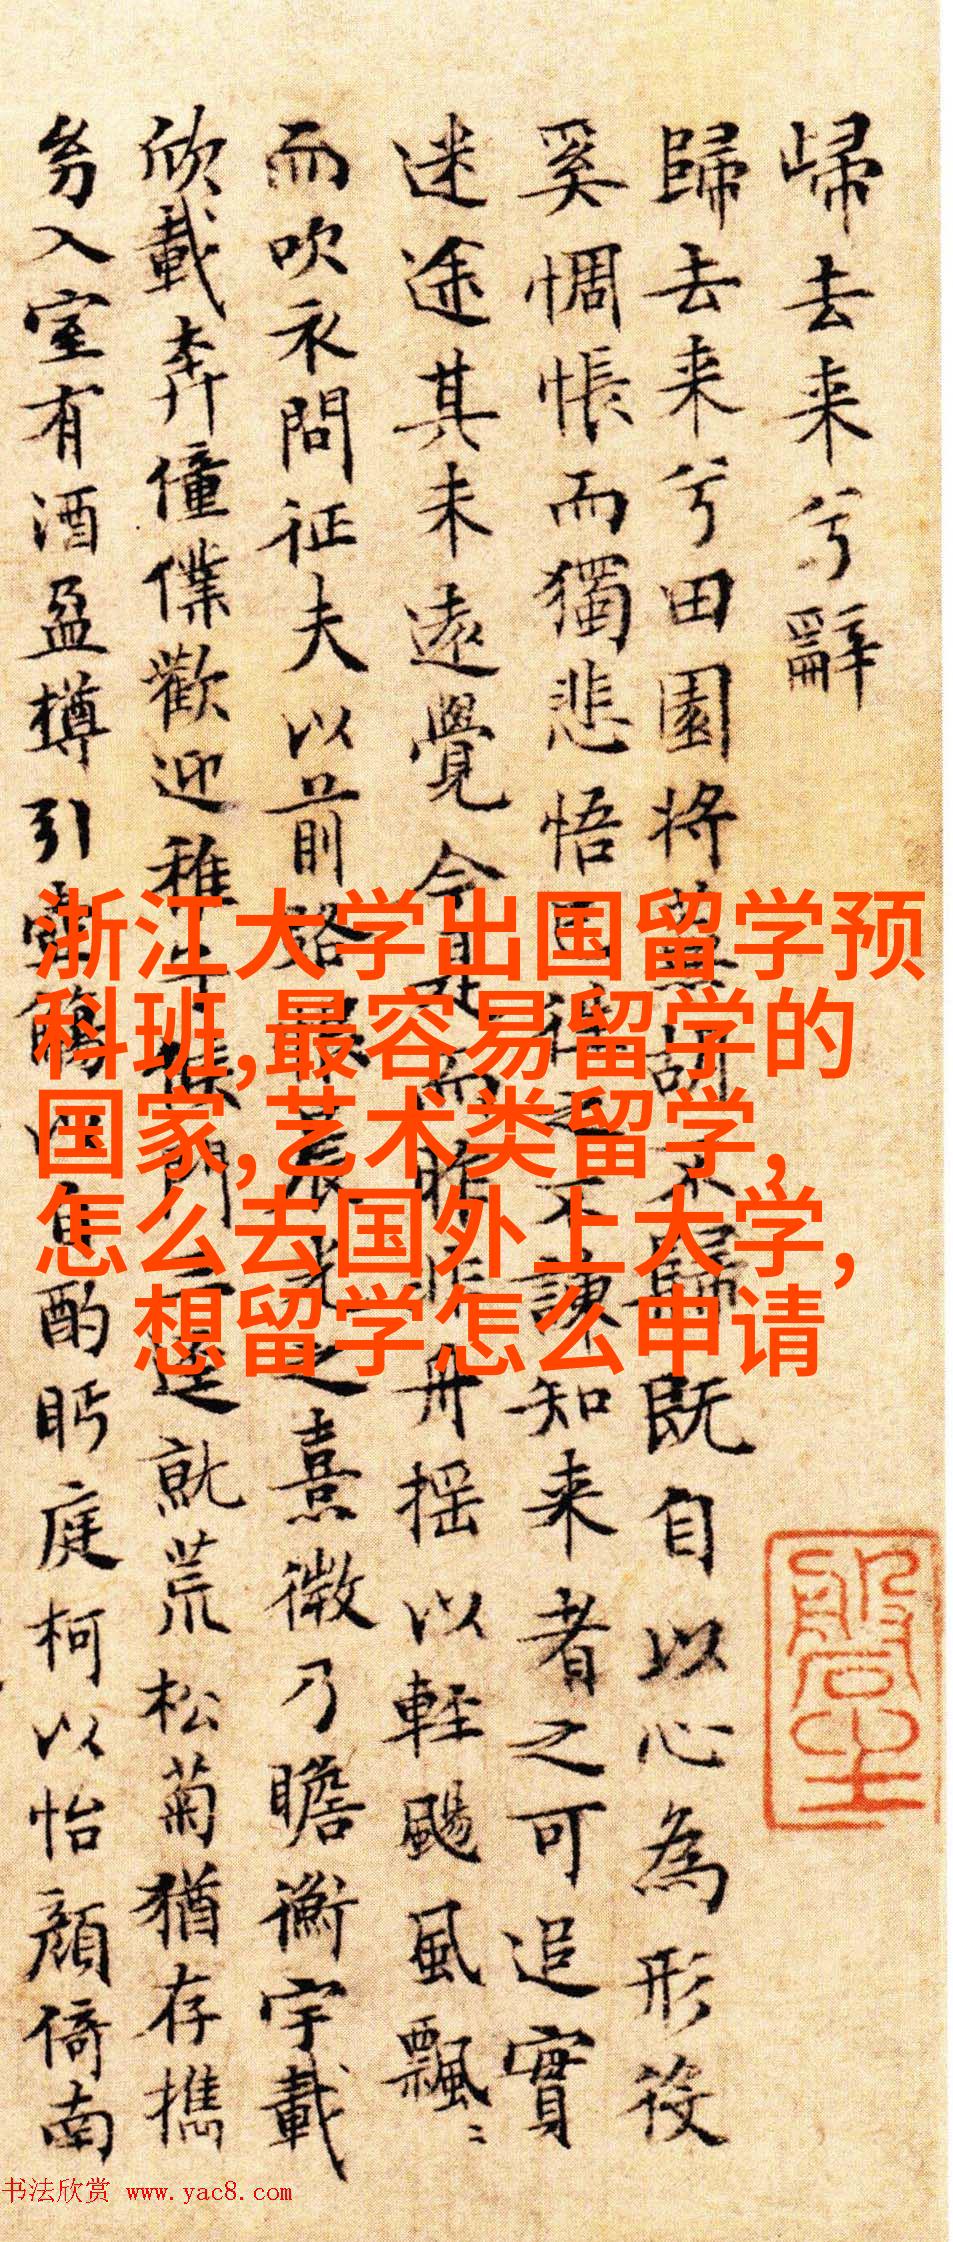 㱕去来兮辭
歸去来兮田園将蕪胡不歸既自以心為形役
奚惆悵而獨悲悟已往之不諫知来者之可追實
迷途其未遠覺今是而昨非舟揺以輕颺風飄〻
而吹衣問征夫以前路恨晨光之熹微乃瞻衡宇載
欣載奔僮僕歡迎稚子候門三逕就荒松菊猶存携
幼入室有酒盈樽引壺觴以自酌眄庭柯以怡顔倚南
浙江大学出国留学预
科班,最容易留学的
国家,艺术类留学,
怎么去国外上大学,
想留学怎么申请
书法欣赏 www.yac8.com